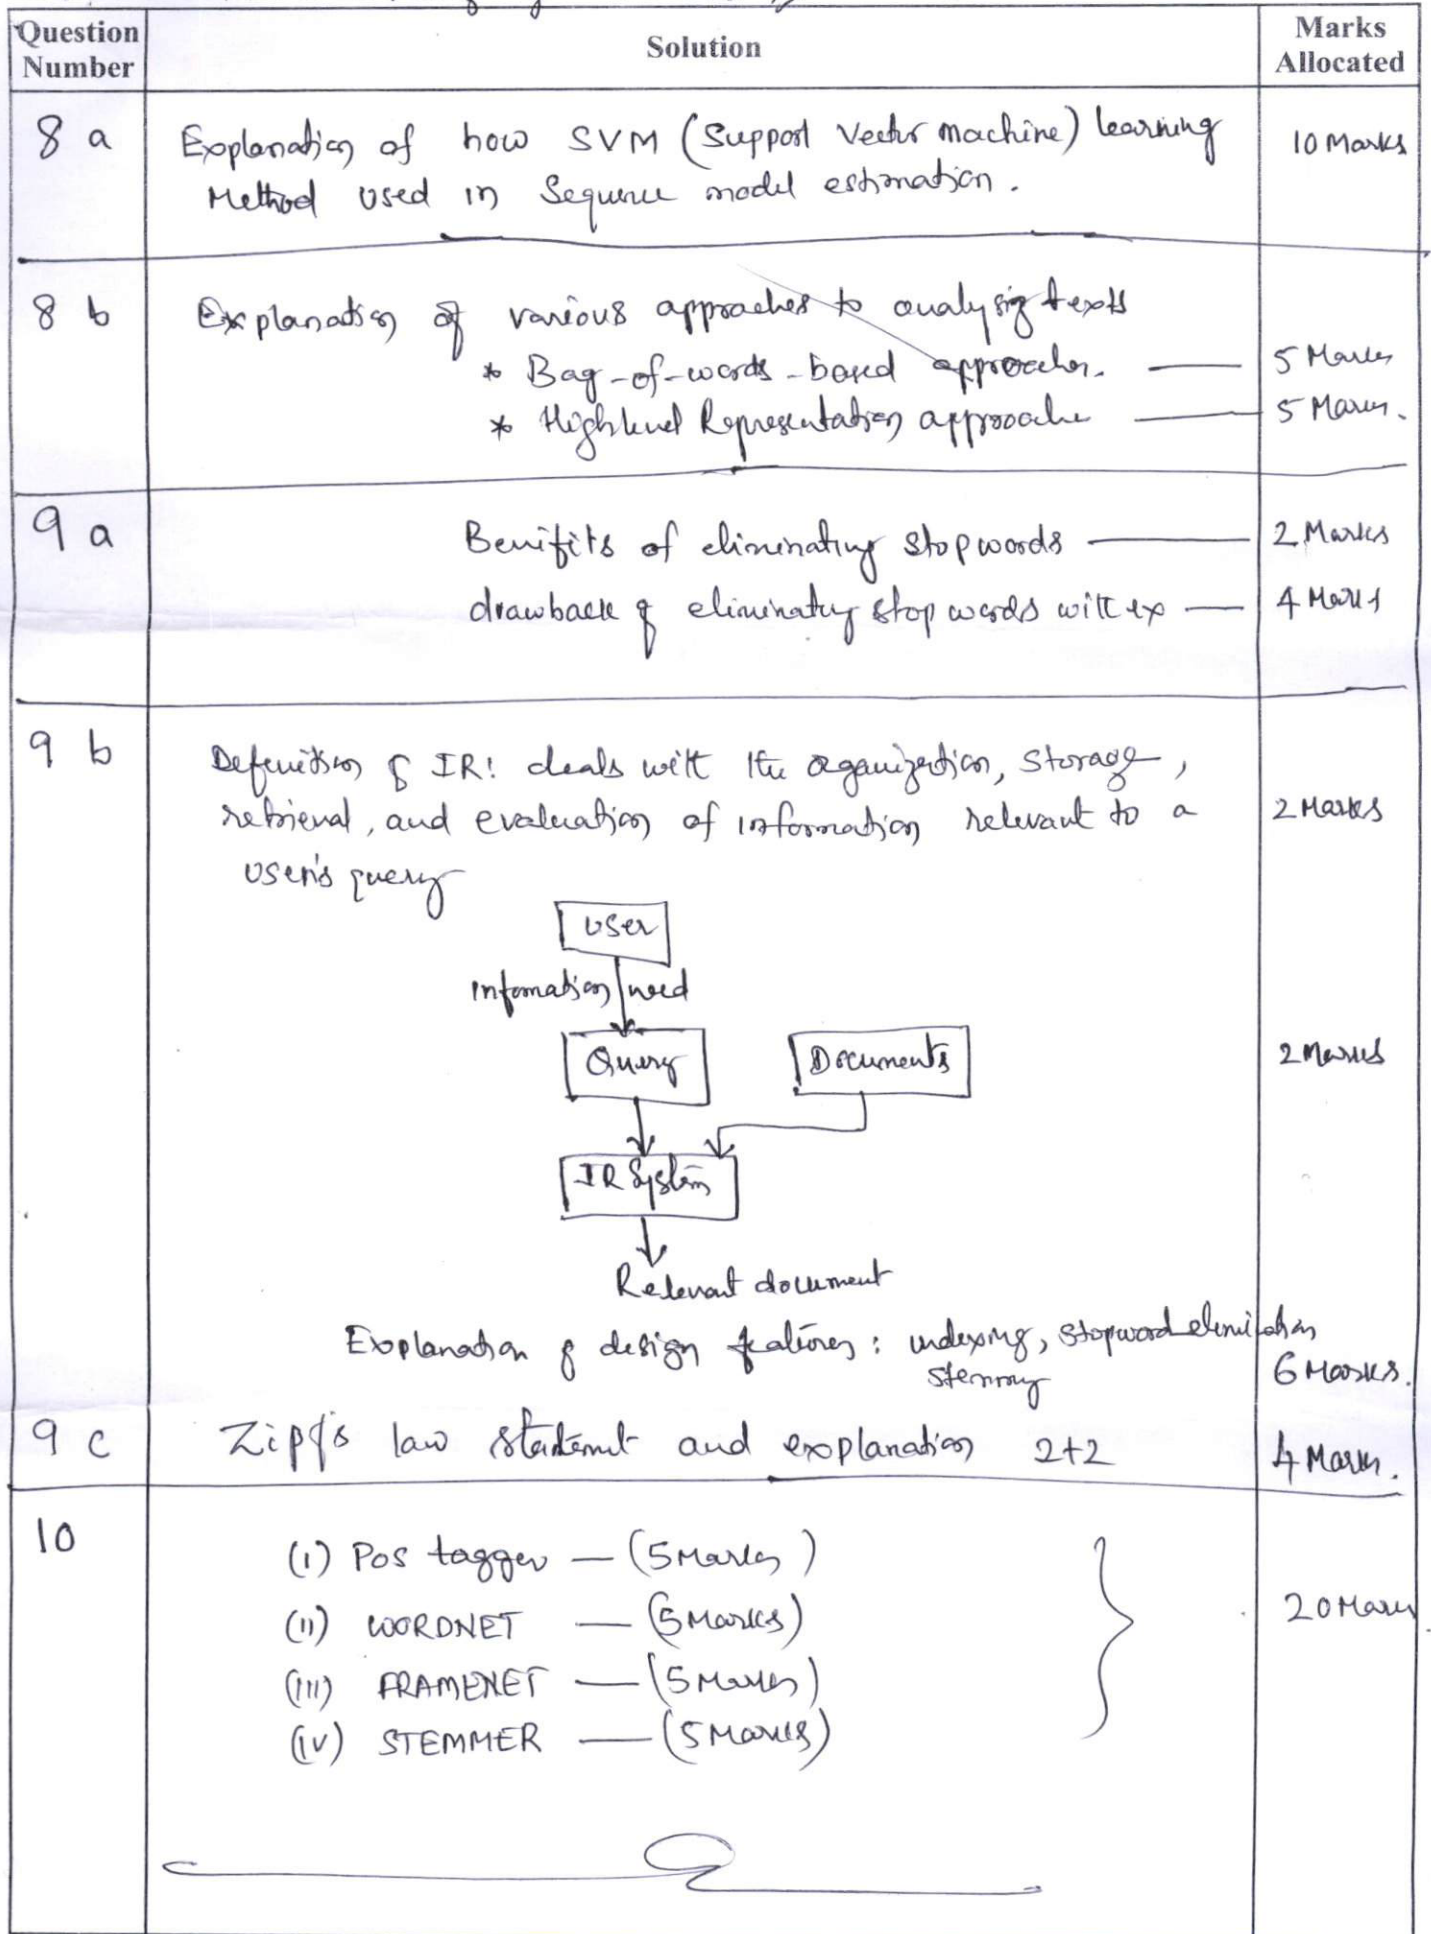 Question Number
Solution
Marks Allocated
8 a
Explanation of how SVM (Support Vector machine) learning
10 Marks
Method used in Sequence model estimation.
8 b
Explanation of various approaches to analysing texts
* Bag-of-words-based approaches.
5 Marks
* Highlevel Representation approache
5 Marks.
9 a
Benifits of eliminating stopwords
2 Marks
drawback of eliminating stop words with ex
4 Marks
9 b
Definition of IR: deals with the organization, storage,
retrieval, and evaluation of information relevant to a
2 Marks
user's query
User
Information need
Query
Documents
2 Marks
IR System
Relevant document
Explanation of design features: indexing, stopword elimination
stemming
6 Marks.
9 c
Zipf's law statement and explanation 2+2
4 Marks.
10
(i) Pos tagger — (5 Marks)
(ii) WORDNET — (5 Marks)
20 Marks
(iii) FRAMENET — (5 Marks)
(iv) STEMMER — (5 Marks)